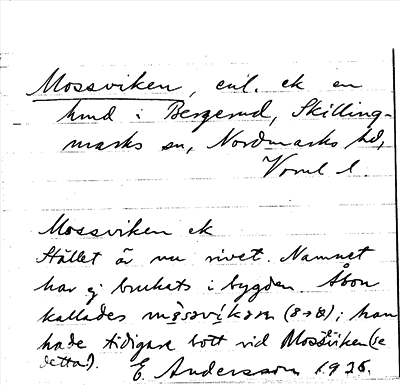 Mossviken, enl. ek en
hmd i Bergerud, Skilling-
marks sn, Nordmarks hd,
Vrml l.
Mossviken ek
Stället är nu rivet. Namnet
har ej brukats i bygden. Åbon
kallades
han
hade tidigare bott vid Mossviken (se
detta).
E. Andersson 1926.